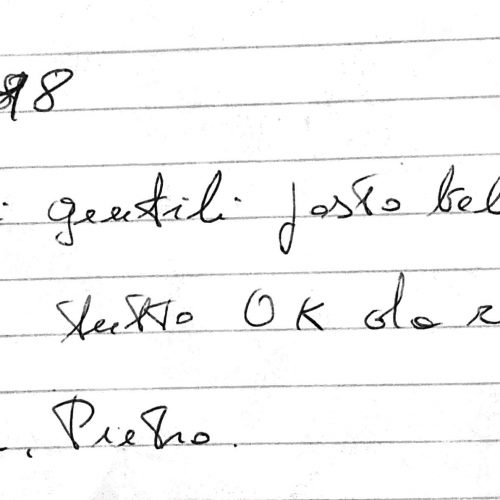 98
gentili posto bel
tutto OK da
Pietro.